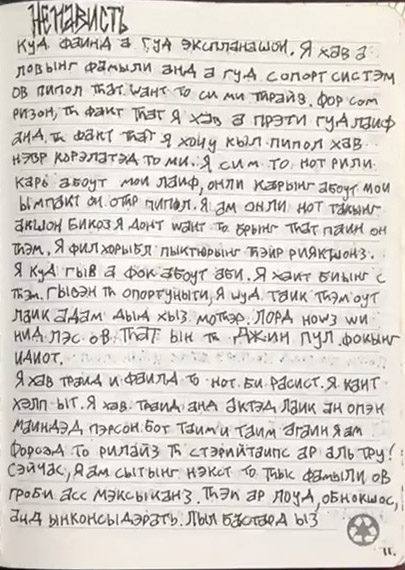 НЕНАВИСТЬ
КУД ФАИНД А ГУД ЭКСПЛАНАШОИ. Я ХАВ А
ЛОВЫНГ ФАМЫЛИ АНД А ГУД СОПОРТ СИСТЭМ
ОВ ПИПОЛ THAT WANT ТО СИ МИ ТНРАЙВ. ФОР СОМ
РИЗОН, TH ФАКТ THAT Я ХАВ А ПРЭТИ ГУД ЛАИФ
АНД, TH ФАКТ THAT Я ХОЧУ КЫЛ ПИПОЛ ХАВ
НЭВР КОРЭЛАТЭД ТО МИ. Я СИМ ТО НОТ РИЛИ
КАРЬ АБОУТ МОИ ЛАИФ, ОНЛИ КАРЫНГ АБОУТ МОИ
ЫМПАКТ ОН ОТНР ПИПОЛ. Я АМ ОНЛИ НОТ ТАКЫНГ
АКШОН БИКОЗ Я ДОНТ WANT ТО БРЫНГ THAT ПАИН ОН
THЭМ. Я ФИЛ ХОРЫБЛ ПЫКТЮРЫНГ THЭЙР РИЯКТШОНЗ.
Я КУД ГЫВ А ФОК АБОУТ АБИ. Я ХАИТ БИЫНГ С
THЭМ. ГЫВЭН TH ОПОРТУНЫТИ, Я WУД ТАИК THЭМ ОУТ
ЛАИК АДАМ ДЫД ХЫЗ МОТНЭР. ЛОРД НОWЗ WИ
НИД ЛЭС ОВ THAT ЫН TH ДЖИН ПУЛ. ФОКЫНГ
ИДИОТ.
Я ХАВ ТРАИД И ФАИЛД ТО НОТ БИ РАСИСТ. Я КАНТ
ХЭЛП ЫТ. Я ХАВ ТРАИД АНД АКТЭД ЛАИК АН ОПЭН
МАИНДЭД ПЭРСОН. БОТ ТАИМ И ТАИМ АГАИН Я АМ
ФОРСЭД ТО РИЛАЙЗ TH СТЭРИЙТАИПС АР АЛЬ ТРУ!
СЭЙЧАС, Я АМ СЫТЫНГ НЭКСТ ТО THЫК ФАМЫЛИ ОВ
ГРОБИ АСС МЭКСЫКАНЗ. THЭИ АР ЛОУД, ОБНОКШОС,
АНД ЫНКОНСЫДЭРАТЬ. ЛЫЛ БАСТАРД ЫЗ